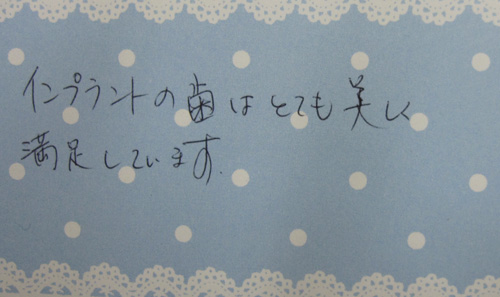 インプラントの歯はとても美しく
満足しています.